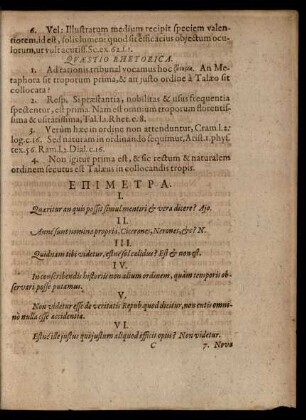 6. Vel: Illustratum medium recipit speciem valentiorem, id est, solis lumen: quod sic efficacius objectum oculorum, ut vult acutiss. Sc. ex. 62. f. 1.
QUÆSTIO RHETORICA.
1. Ad rationis tribunal vocamus hoc An Metaphora sit troporum prima, & an justo ordine à Talæo sit collocata?
2. Resp. Si præstantia, nobilitas & usus frequentia spectentur, est prima. Nam est omnium troporum florentissima & usitatissima, Tal. l. 1. Rhet. c. 8.
3. Verùm hæc in ordine non attenduntur, Cram. l. 2. log. c. 16. Sed naturam in ordinando sequimur, Arist. 1. phys. tex. 56. Ram. l. 2. Dial. c. 16.
4. Non igitur prima est, & sic rectum & naturalem ordinem secutus est Talæus in collocandis tropis.
ΕΠΙΜΕΤΡΑ.
I.
Quæritur an quis possit simul mentiri & vera dicere? Ajo.
II.
Anne sunt nomina propria, Cicerones, Nerones, &c? N.
III.
Quidnam tibi videtur, estne sol calidus? Est & non est.
IV.
In conscribendis historiis non alium ordinem, quàm temporis observari posse putamus.
V.
Non videtur esse de veritatis Repub. quod dicitur, non entis omnino nulla esse accidentia.
VI.
Estne ille justus qui justum aliquod efficit opus? Non videtur.
C 7. Nova